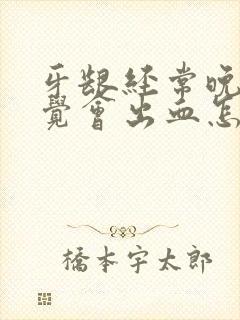 牙龈経常晚
覺會出血怎
橋本宇太郎